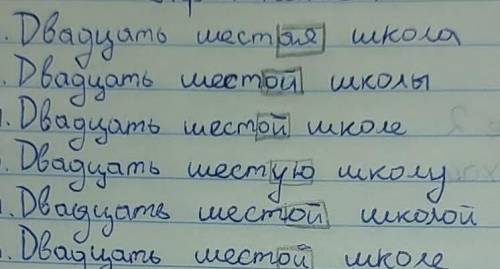 . Двадцать шестая школа
. Двадцать шестой школы
. Двадцать шестой школе
. Двадцать шестую школу
. Двадцать шестой школой
. Двадцать шестой школе